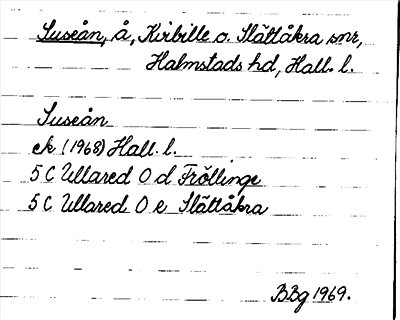 Suseån, å, Kvibille o. Slättåkra snr,
Halmstads hd, Hall. l.
Suseån
ek (1968) Hall. l.
5 C Ullared 0 d Fröllinge
5 C Ullared 0 e Slättåkra
BBg 1969.